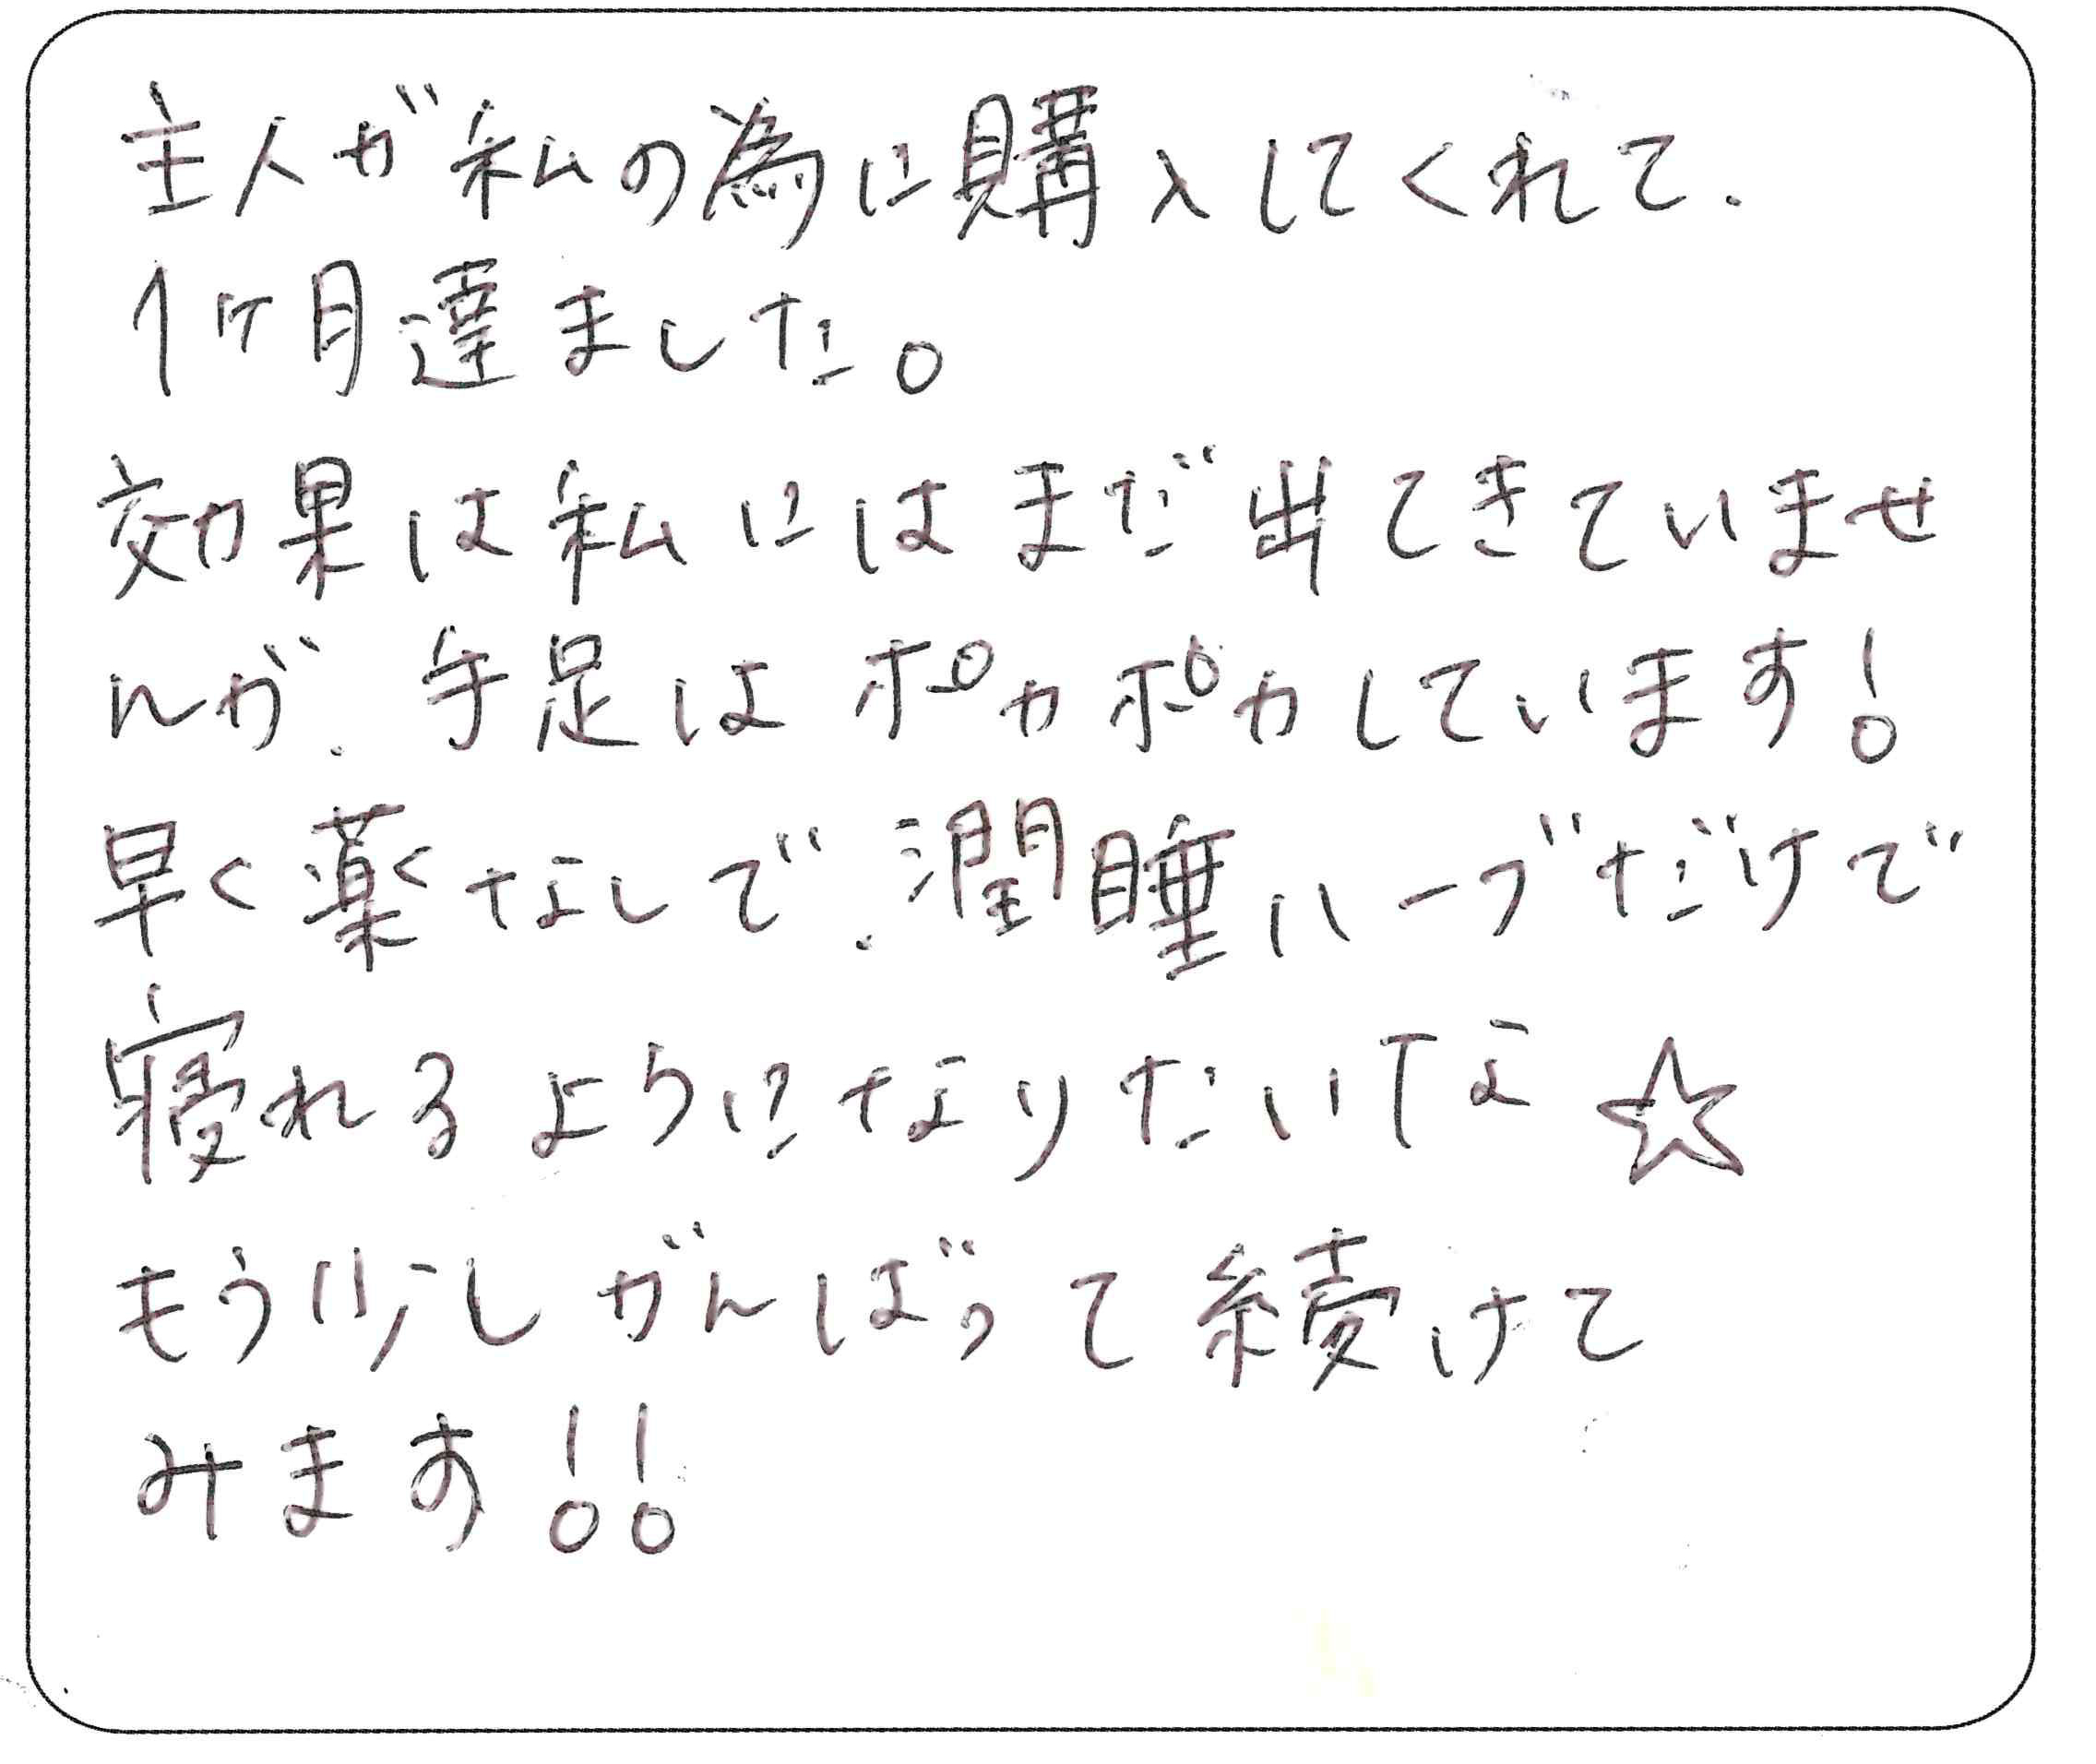 主人が私の為に購入してくれて.
1ヶ月達ました。
効果は私にはまだ出てきていませ
んが.手足はポカポカしています!
早く薬なしで.潤睡ハーブだけで
寝れるようになりたいTな☆
もう少しがんばって続けて
みます!!